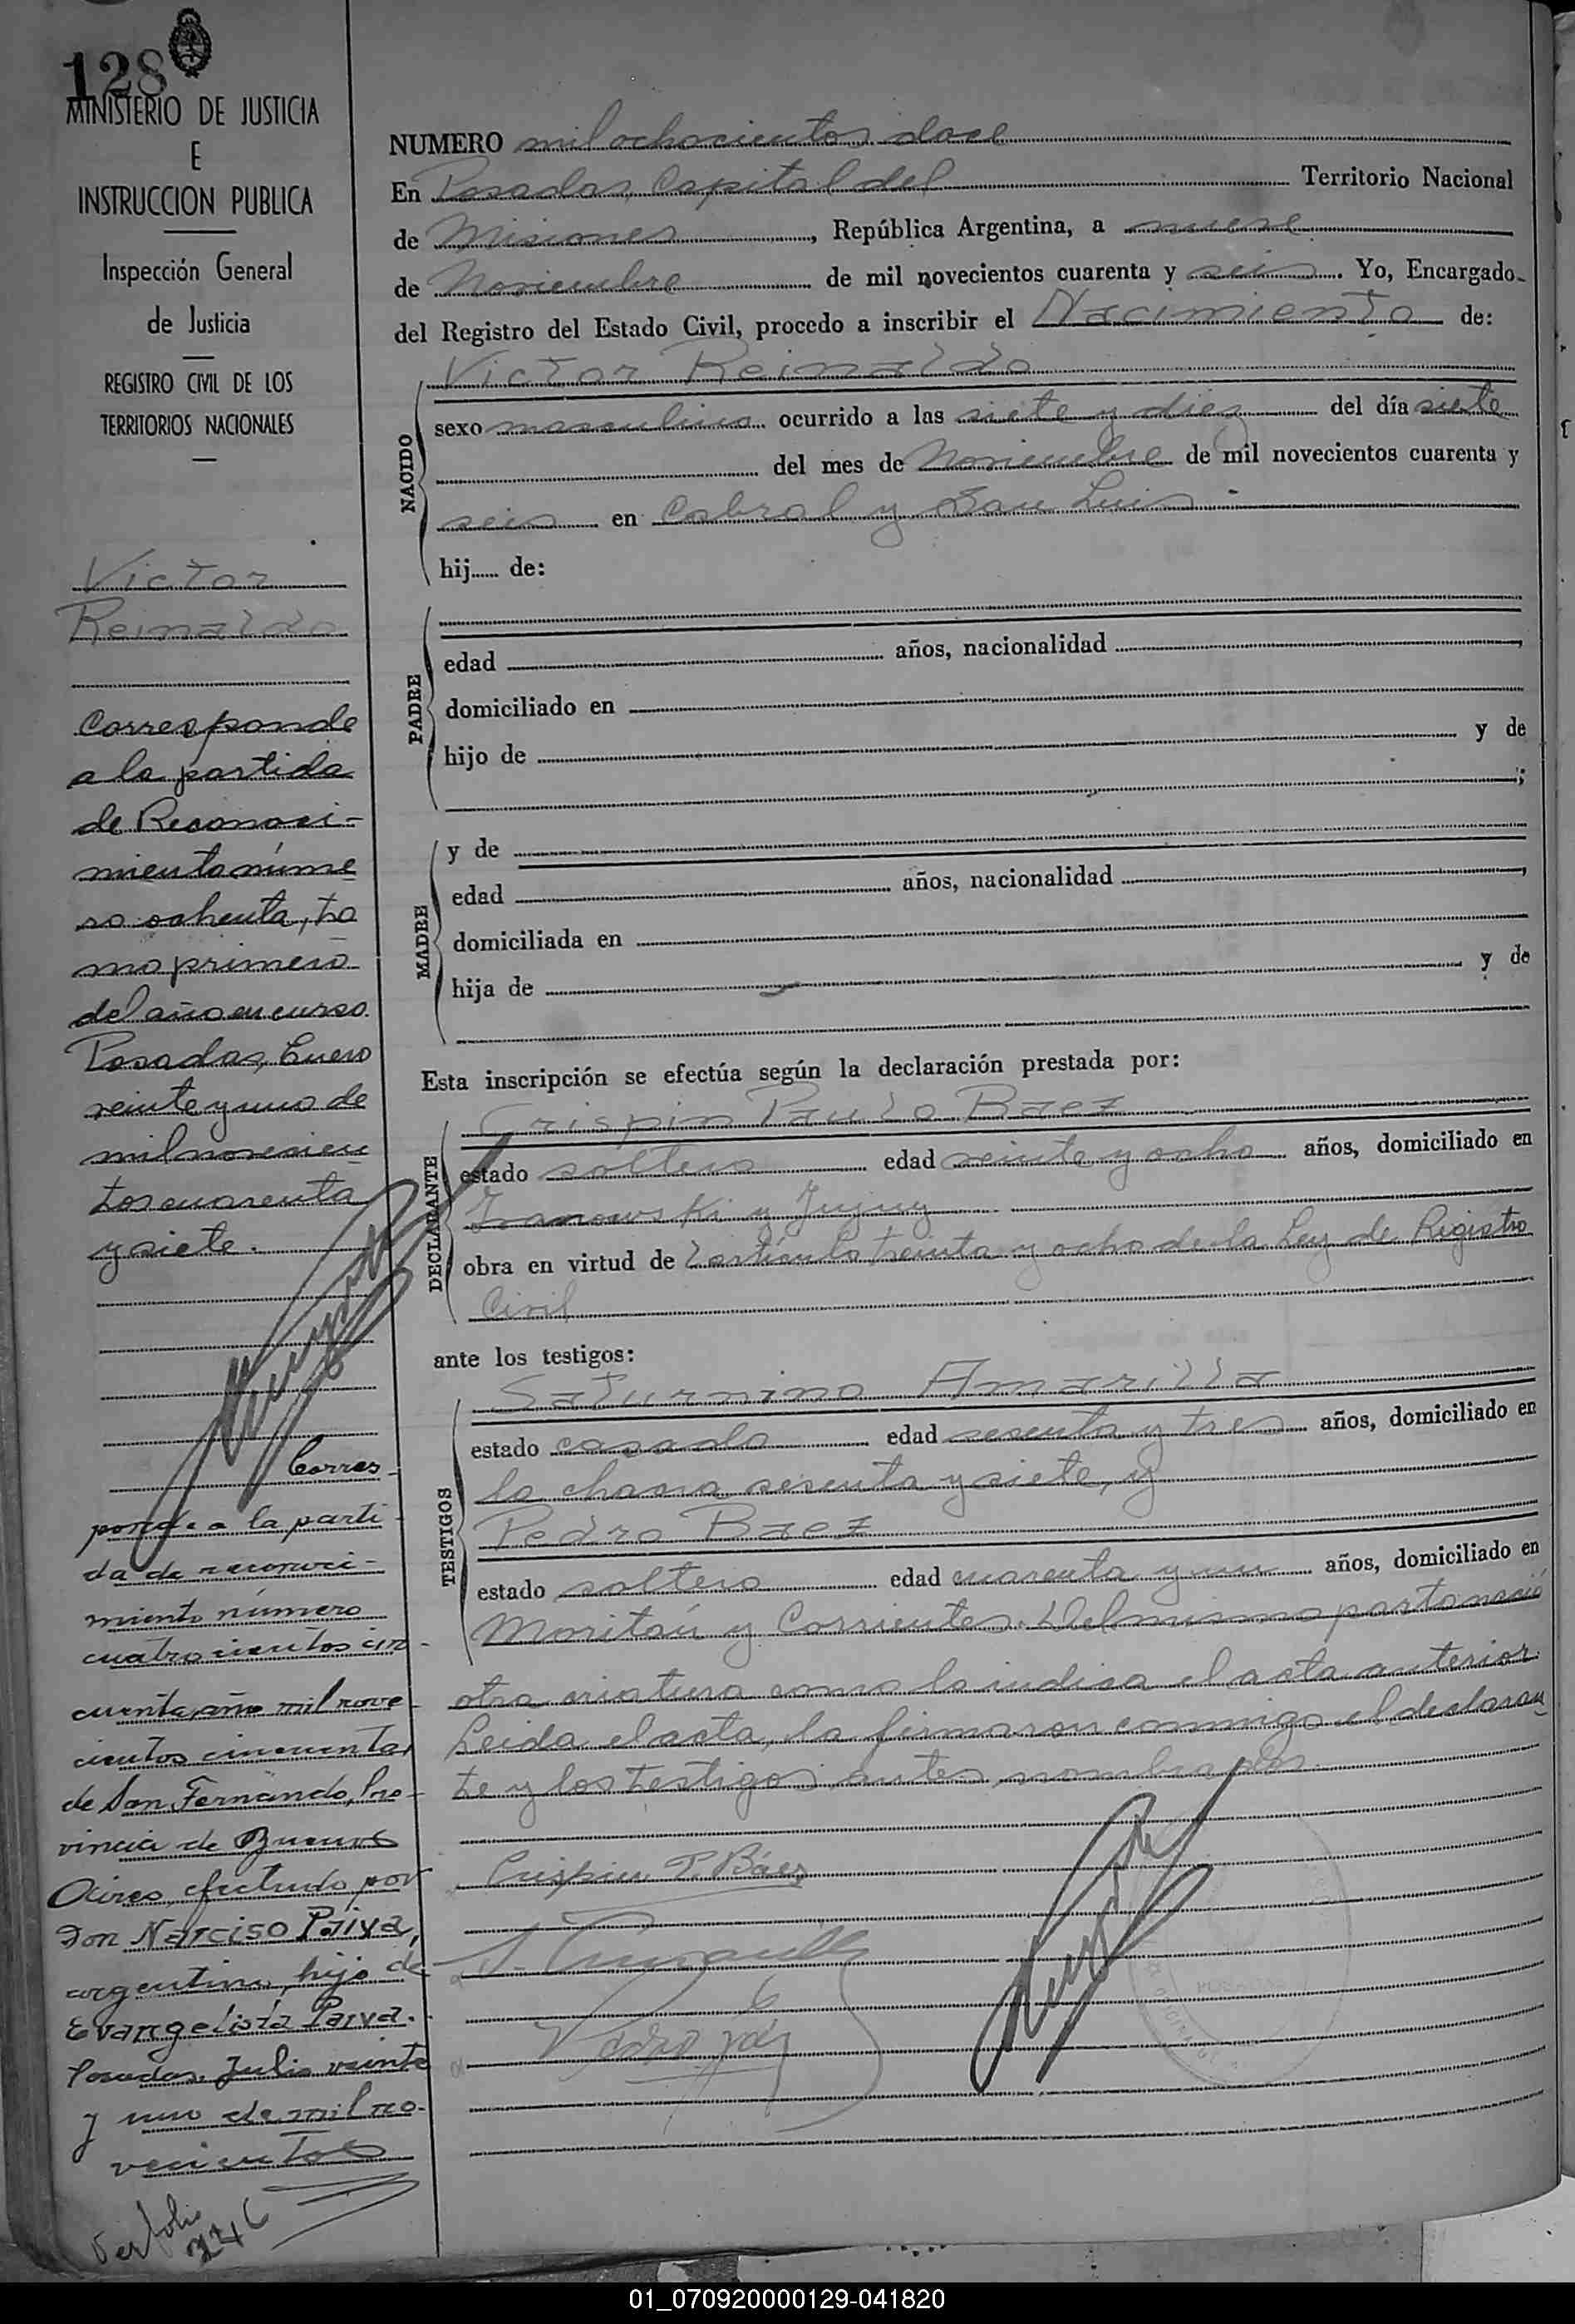 128
MINISTERIO DE JUSTICIA
E
INSTRUCCION PUBLICA
Inspección General
de Justicia
REGISTRO CIVIL DE LOS
TERRITORIOS NACIONALES
Victor
Reinaldo
Corresponde
a la partida
de Reconoci-
miento núme
ro ochenta, to
mo primero
del año en curso.
Posadas, Enero
veinte y uno de
mil novecien
tos cuarenta
y siete.
Corres-
ponde a la parti-
da de reconoci-
miento número
cuatrocientos cin-
cuenta, año mil nove-
cientos cincuenta,
de San Fernando, Pro-
vincia de Buenos
Aires, efectuado por
Don Narciso Paiva,
argentino, hijo de
Evangelista Paiva.
Posadas, Julio veinte
y uno de mil no-
vecientos
Ver folio
246
NUMERO mil ochocientos doce
En Posadas, Capital del Territorio Nacional
de Misiones, República Argentina, a nueve
de Noviembre de mil novecientos cuarenta y seis. Yo, Encargado
del Registro del Estado Civil, procedo a inscribir el Nacimiento de:
Victor Reinaldo
NACIDO
sexo masculino ocurrido a las siete y diez del día siete
del mes de Noviembre de mil novecientos cuarenta y
seis en Cabral y San Luis
hij de:
PADRE
edad años, nacionalidad ,
domiciliado en
hijo de y de
;
MADRE
y de
edad años, nacionalidad ,
domiciliada en
hija de y de
Esta inscripción se efectúa según la declaración prestada por:
Crispin Paulo Baez
DECLARANTE
estado soltero edad veinte y ocho años, domiciliado en
Ivanowski y Jujuy
obra en virtud de l artículo treinta y ocho de la Ley de Registro
Civil
ante los testigos:
Saturnino Amarilla
TESTIGOS
estado casado edad sesenta y tres años, domiciliado en
la chacra sesenta y siete, y
Pedro Baez
estado soltero edad cuarenta y un años, domiciliado en
Moritán y Corrientes. Del mismo parto nació
otra criatura como lo indica el acta anterior.
Leida el acta, la firmaron conmigo el declaran
te y los testigos antes nombrados.
Crispin P. Báez
01_070920000129-041820